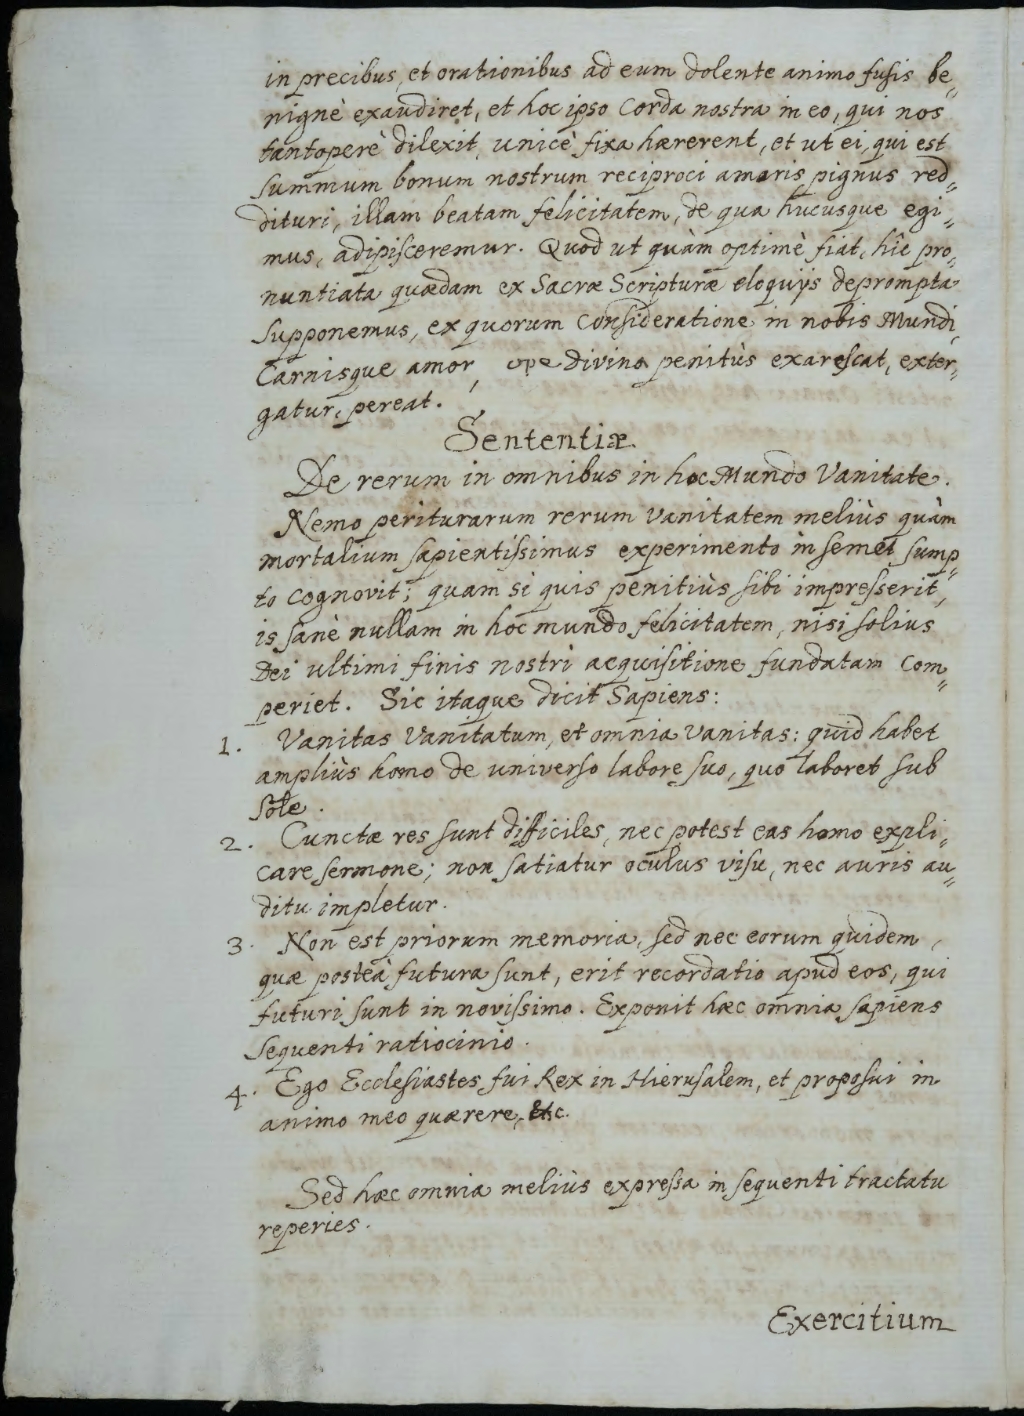 in precibus, et orationibus ad eum dolente animo fusis be„
nignè exaudiret, et hoc ipso Corda nostra in eo, qui nos
tantoperè dilexit, unicè fixa hærerent, et ut ei, qui est
summum bonum nostrum reciproci amoris pignus red„
dituri, illam beatam felicitatem, de qua hucusque egi„
mus, adipisceremur. Quod ut quàm optimè fiat, hîc pro„
nuntiata quædam ex Sacræ Scripturæ eloquijs deprompta
supponemus, ex quorum Consideratione in nobis Mundi,
Carnisque amor, ope divina penitùs exarescat, exter„
gatur, pereat.
Sententiæ
De rerum in omnibus in hoc Mundo Vanitate.
Nemo periturarum rerum vanitatem meliùs quàm
mortalium sapientissimus experimento in semet sump„
to cognovit; quam si quis penitiùs sibi impresserit,
is sanè nullam in hoc mundo felicitatem, nisi solius
Dei ultimi finis nostri acquisitione fundatam com„
periet. Sic itaque dicit Sapiens:
1. Vanitas Vanitatum, et omnia vanitas: quid habet
ampliùs homo de universo labore suo, quo laboret sub
sole.
2. Cunctæ res sunt difficiles, nec potest eas homo expli„
care sermone; non satiatur oculus visu, nec auris au„
ditu impletur.
3. Non est priorum memoria, sed nec eorum quidem,
quæ posteà futura sunt, erit recordatio apud eos, qui
futuri sunt in novissimo. Exponit hæc omnia sapiens
sequenti ratiocinio.
4. Ego Ecclesiastes fui Rex in Hierusalem, et proposui in
animo meo quærere, etc.
Sed hæc omnia meliùs expressa in sequenti tractatu
reperies.
Exercitium